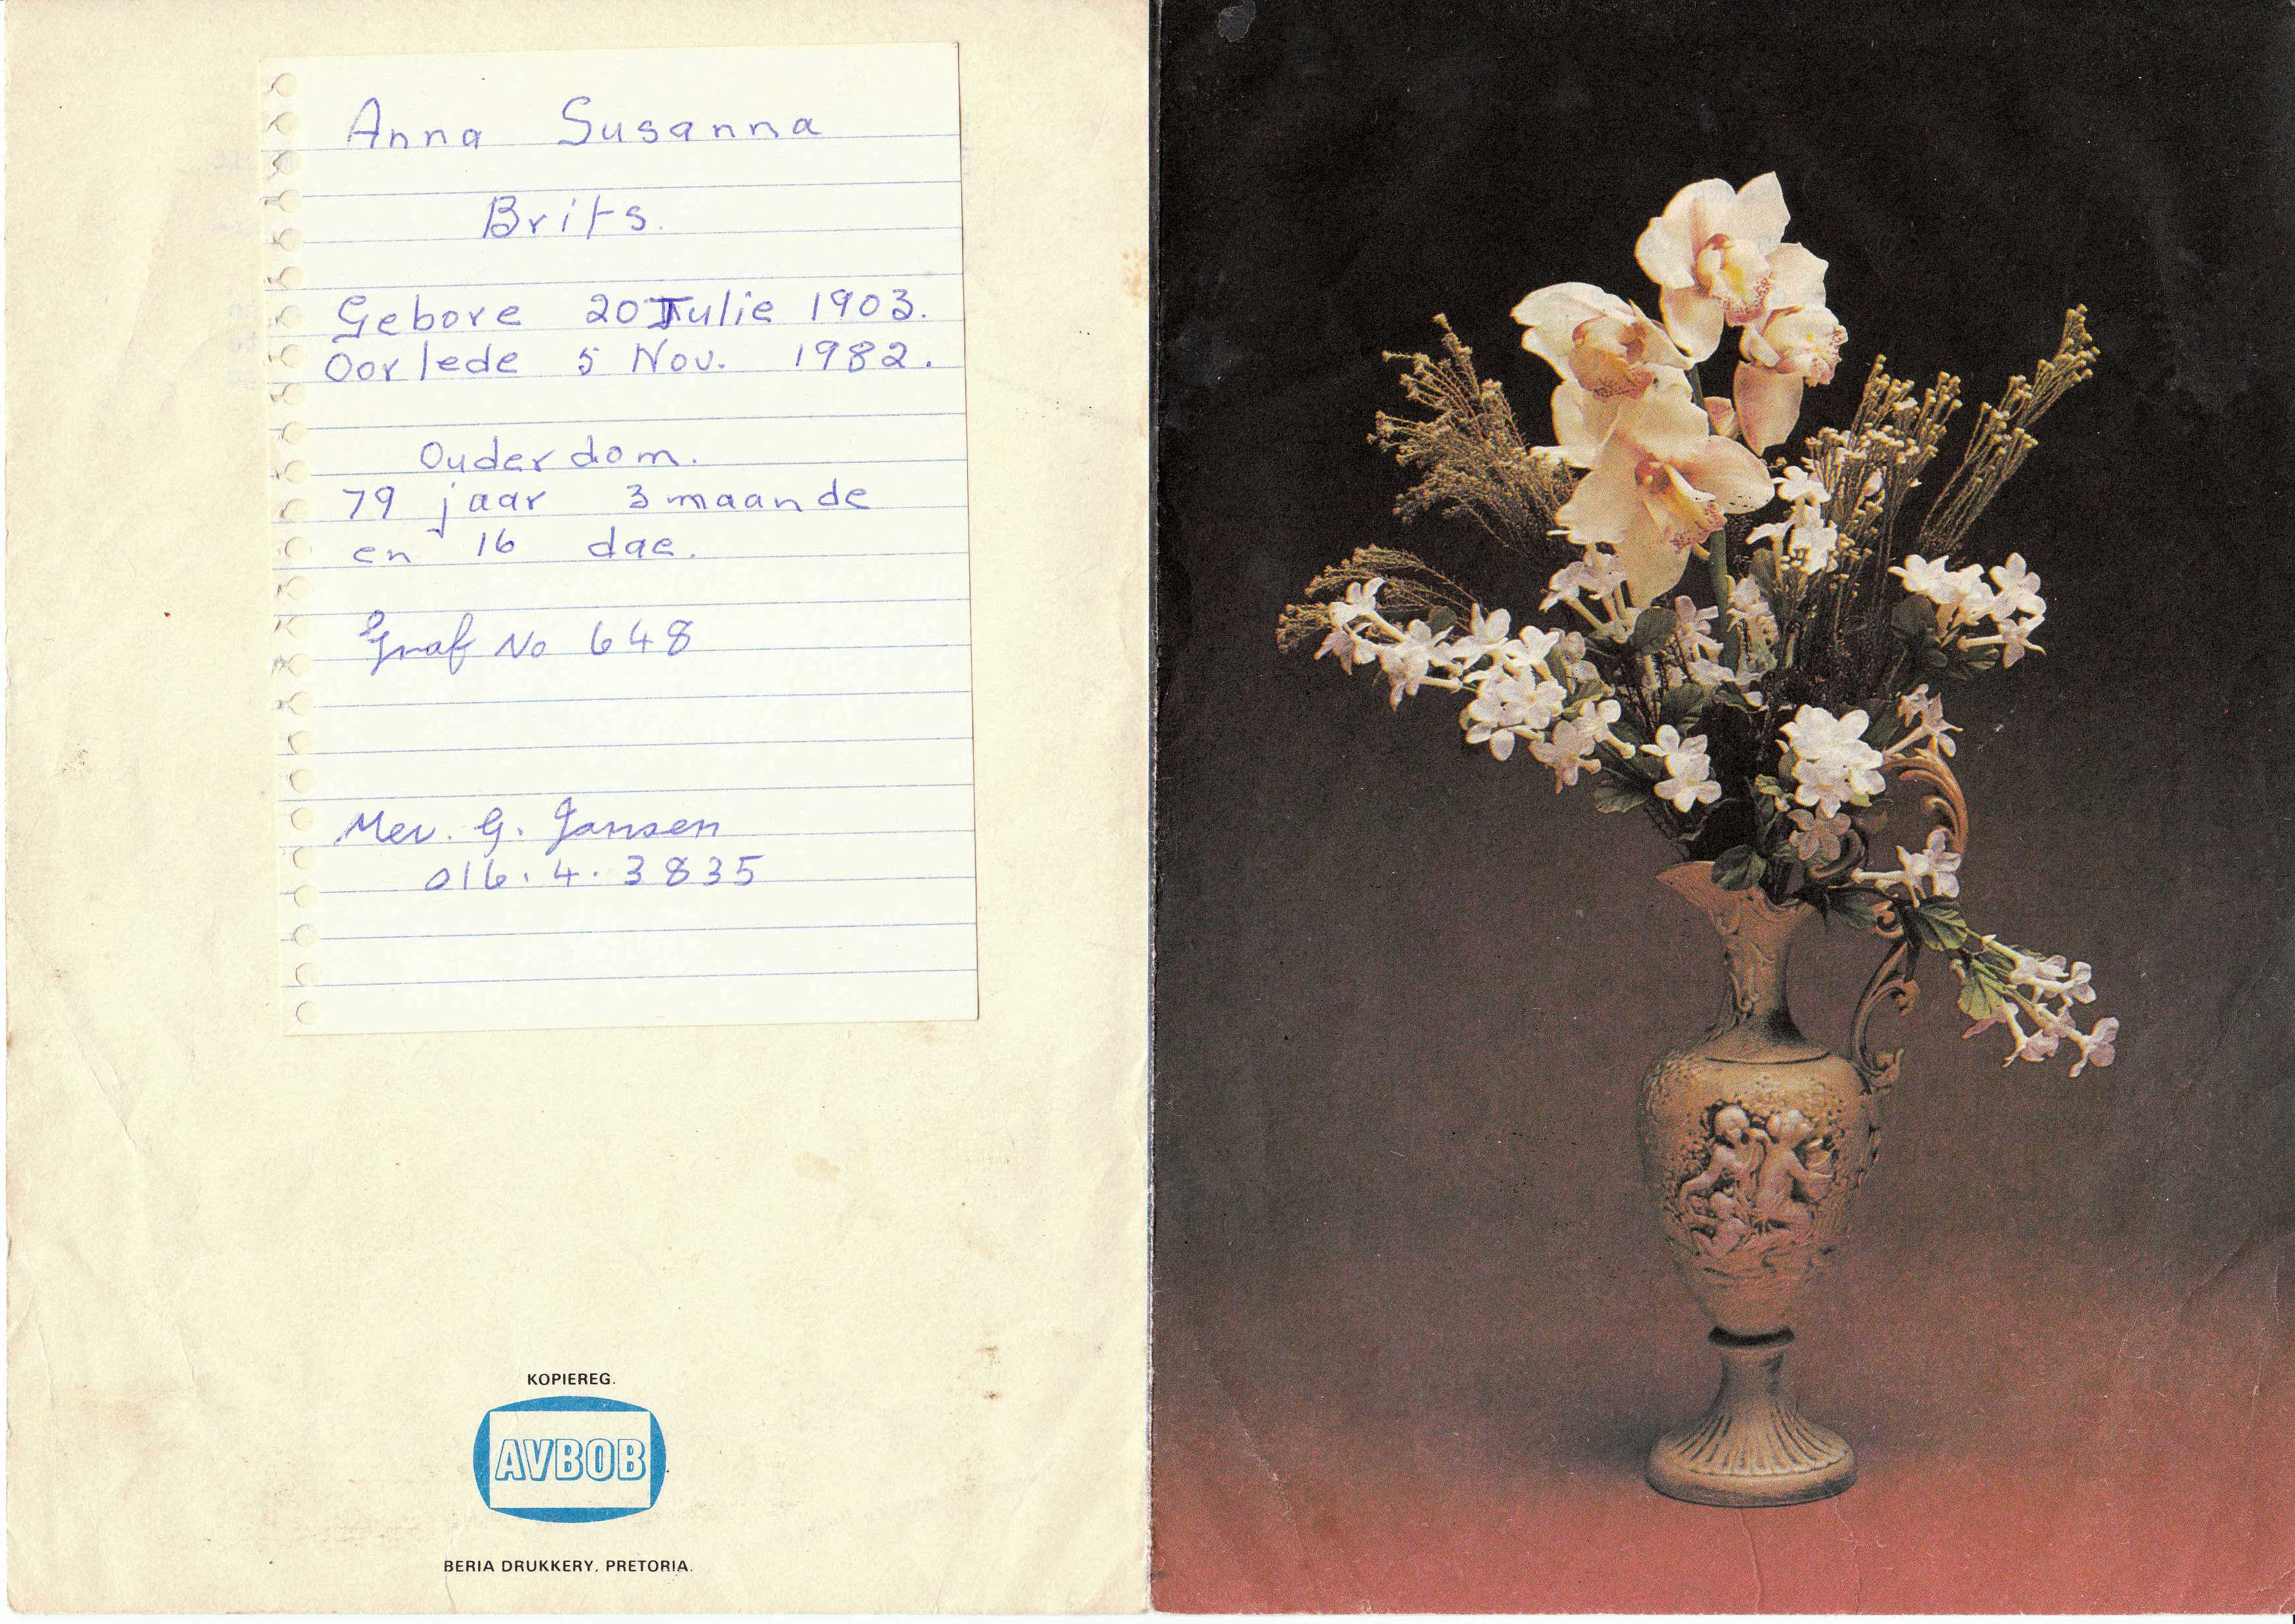 Anna Susanna
Brits.
Gebore 20 Julie 1903.
Oorlede 5 Nov. 1982.
Ouderdom.
79 jaar 3 maande
en 16 dae.
Graf No 648
Mev. G. Jansen
016.4.3835
KOPIEREG.
AVBOB
BERIA DRUKKERY, PRETORIA.